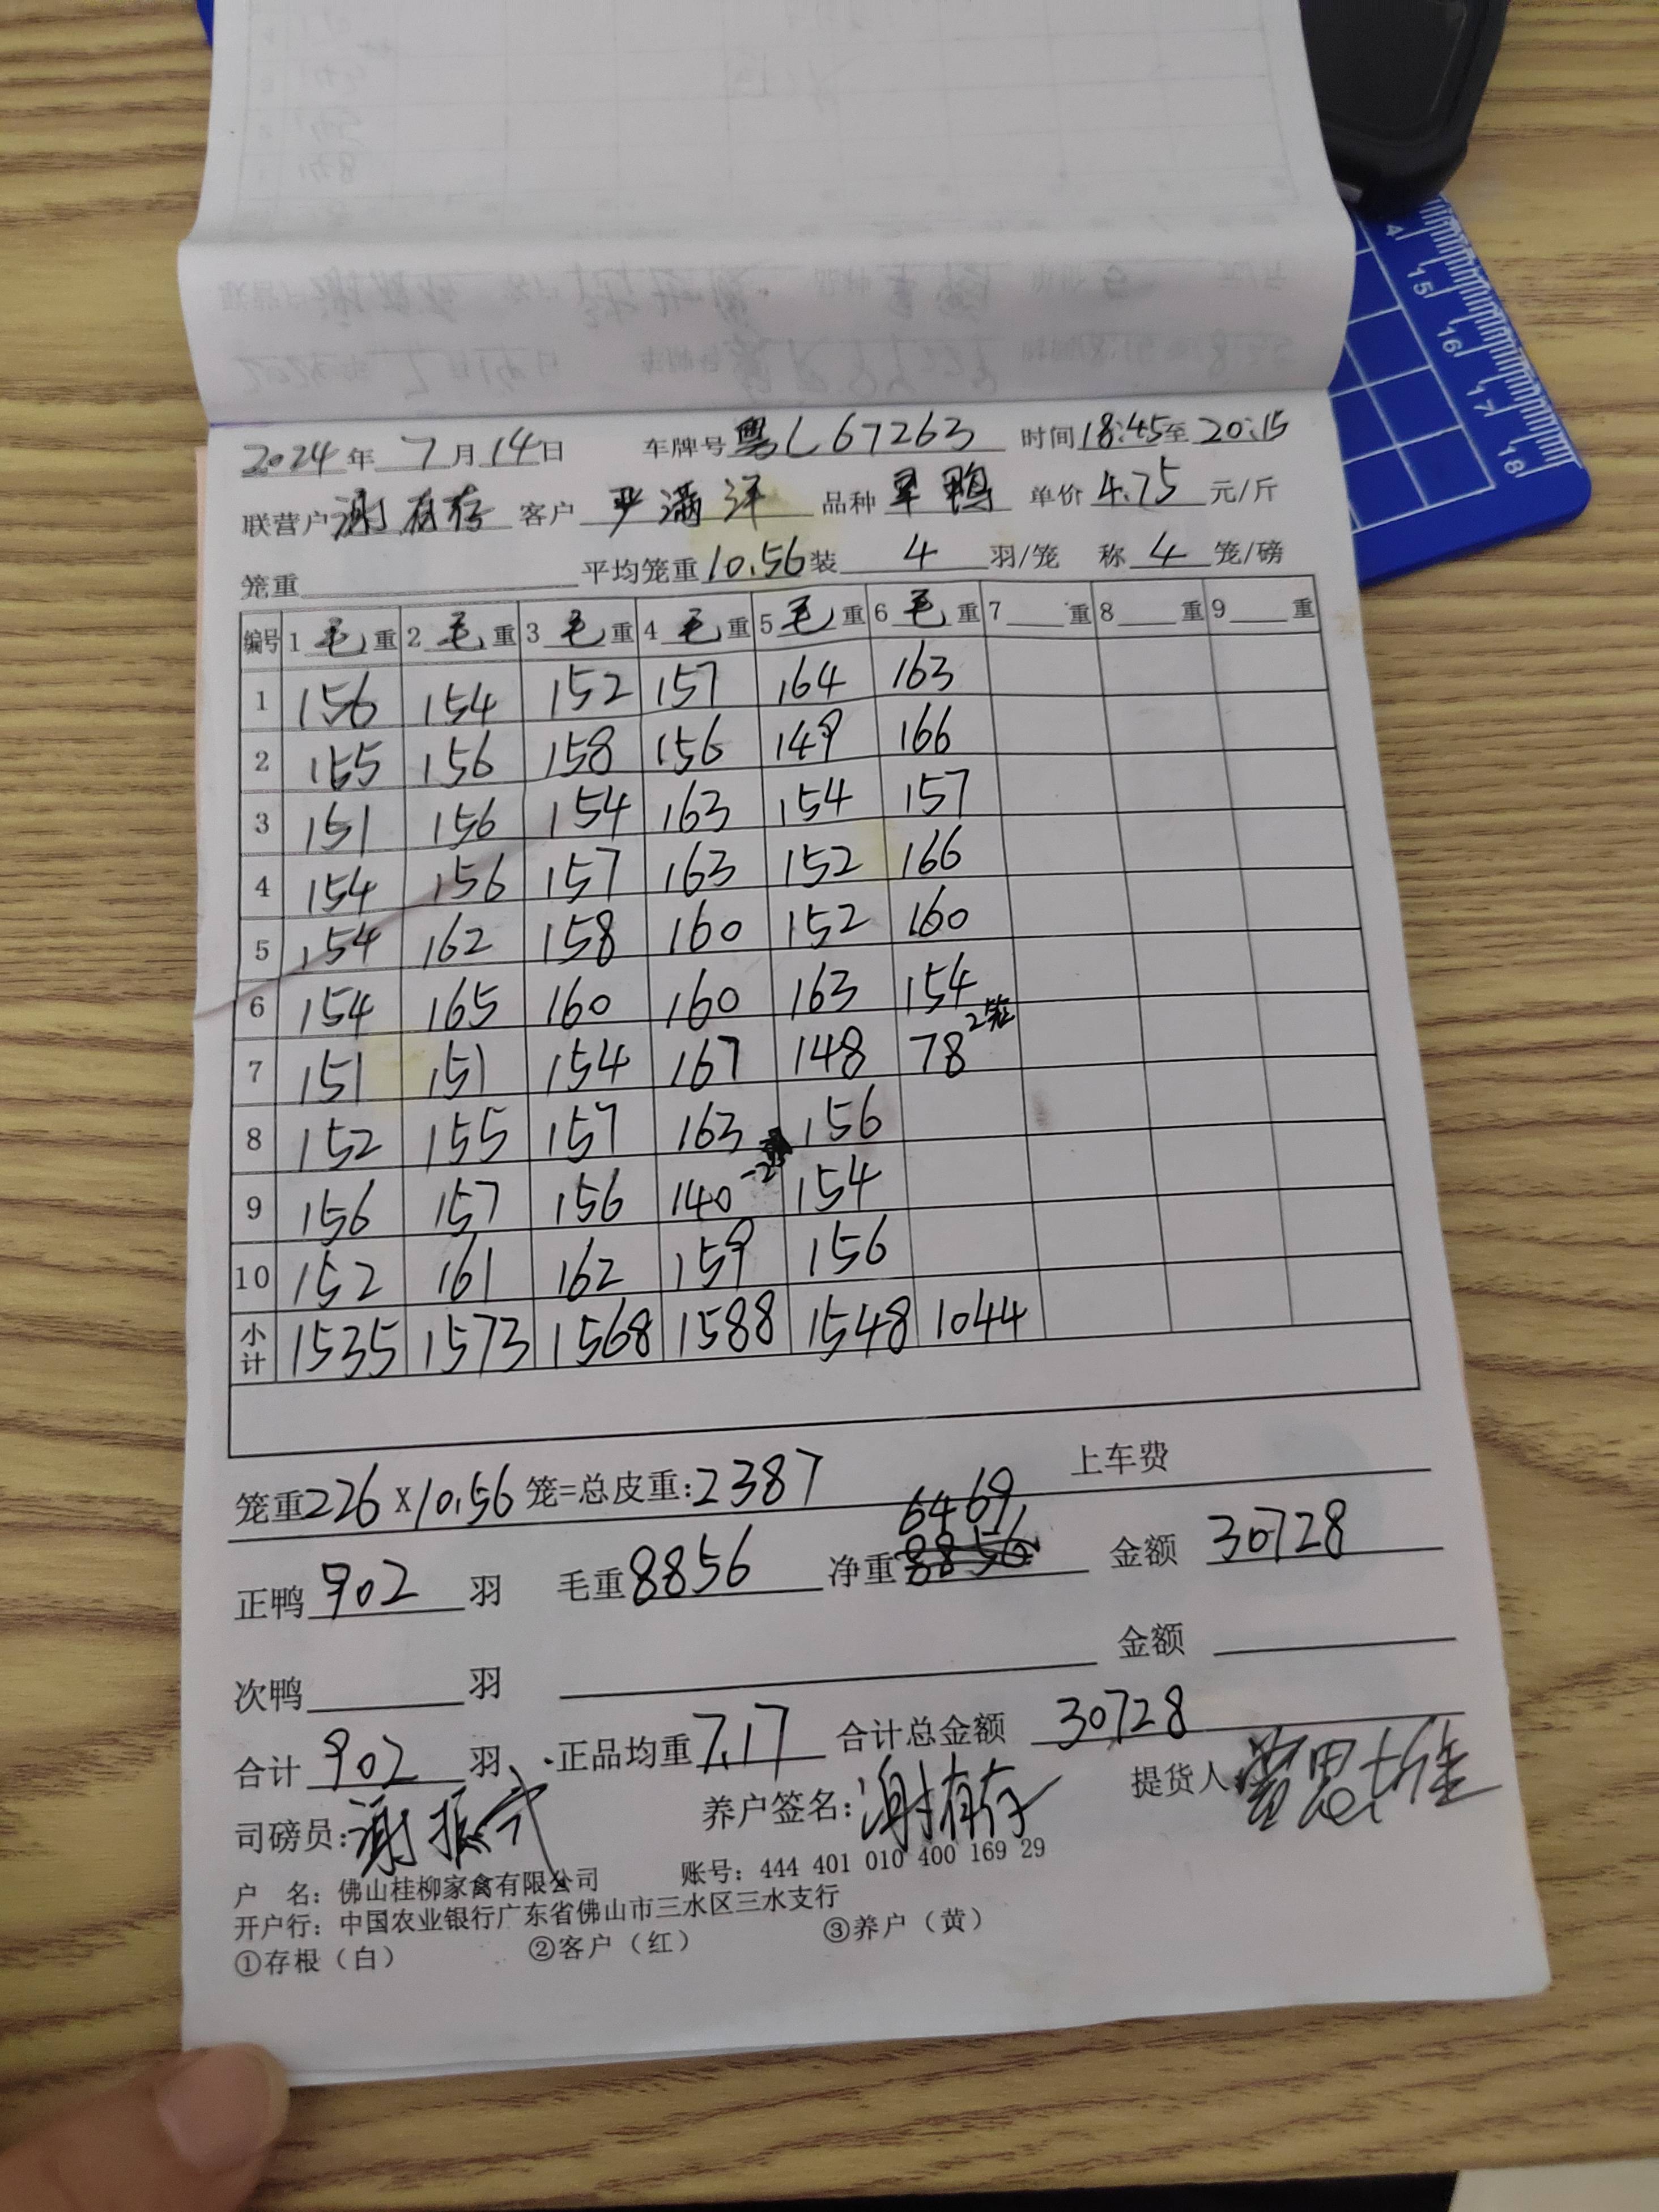 2024年 7月14日 车牌号粤L67263 时间18:45至20:15
联营户谢有存 客户 严满洋 品种 旱鸭 单价 4.75 元/斤
笼重 平均笼重10.56装 4 羽/笼 称 4 笼/磅
编号 1 毛重 2 毛重 3 毛重 4 毛重 5 毛重 6 毛重 7 重 8 重 9 重
1 156 154 152 157 164 163
2 155 156 158 156 149 166
3 151 156 154 163 154 157
4 154 156 157 163 152 166
5 154 162 158 160 152 160
6 154 165 160 160 163 154
7 151 151 154 167 148 78 2笼
8 152 155 157 163 156
9 156 157 156 140 -2 154
10 152 161 162 159 156
小计 1535 1573 1568 1588 1548 1044
笼重226 X 10.56 笼=总皮重:2387 上车费
正鸭 902 羽 毛重8856 净重 6469 金额 30728
次鸭 羽 金额
合计 902 羽 正品均重7.17 合计总金额 30728
司磅员:谢振 养户签名:谢有存 提货人
户 名: 佛山桂柳家禽有限公司 账号: 444 401 010 400 169 29
开户行: 中国农业银行广东省佛山市三水区三水支行
①存根（白） ②客户（红） ③养户（黄）
4
15
16
17
18